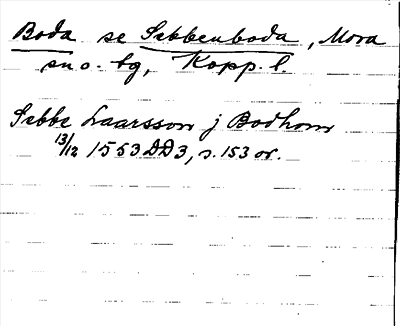 Boda se Sebbenboda, Mora
sn o. tg, Kopp. l.
Sebbe Laarsson j Bodhom
13/12 1553 DD3, s. 153 or.